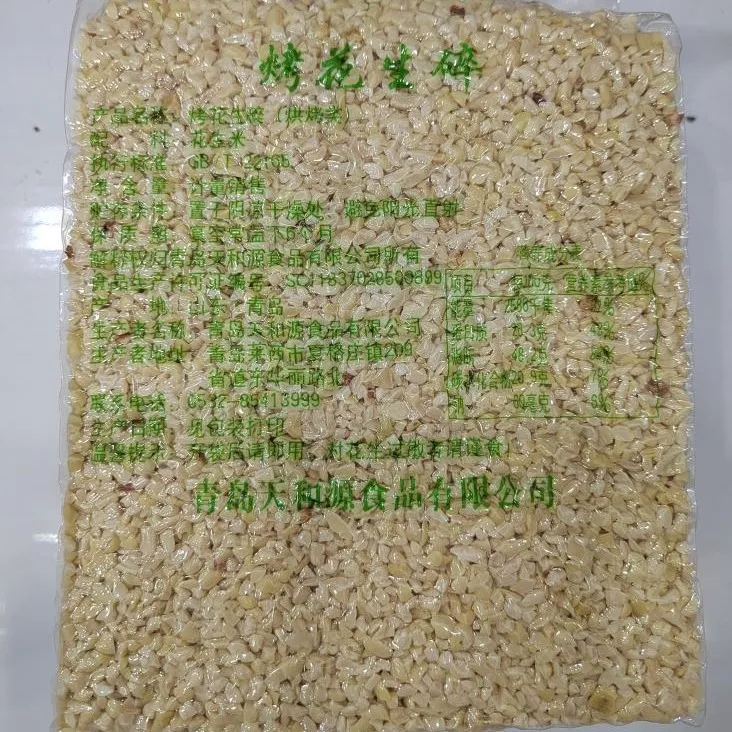 烤花生碎
产品名称：烤花生碎（烘烤类）
配 料：花生米
执行标准：GB/T 22165
净含量：计量销售
贮存条件：置于阴凉干燥处，避免阳光直射
保质期：真空常温下6个月
版权归青岛天和源食品有限公司所有
食品生产许可证编号：
产 地：山东 青岛
生产者名称：青岛天和源食品有限公司
生产者地址：青岛莱西市夏格庄镇209
省道东华丽路北
联系电话：0532-85413999
生产日期：见包装打印
温馨提示：开袋后请即用，对花生过敏者请谨食！
营养成分表
项目 每100克 营养素参考值%
能量
蛋白质
脂肪
碳水化合物
钠
青岛天和源食品有限公司